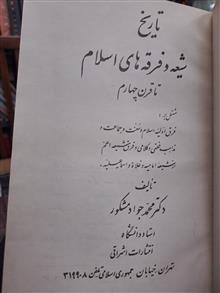 تاریخ
شیعه و فرقه های اسلام
تا قرن چهارم
مشتمل بر:
فرق اولیه اسلام و سنت و جماعت و
مذاهب فقهی و کلامی و فرق شیعه اعم
از شیعه امامیه و غلاة و اسماعیلیه.
تألیف
دکتر محمد جواد مشکور
استاد دانشگاه
انتشارات اشراقی
تهران، خیابان جمهوری اسلامی تلفن ۳۱۹۹۰۸